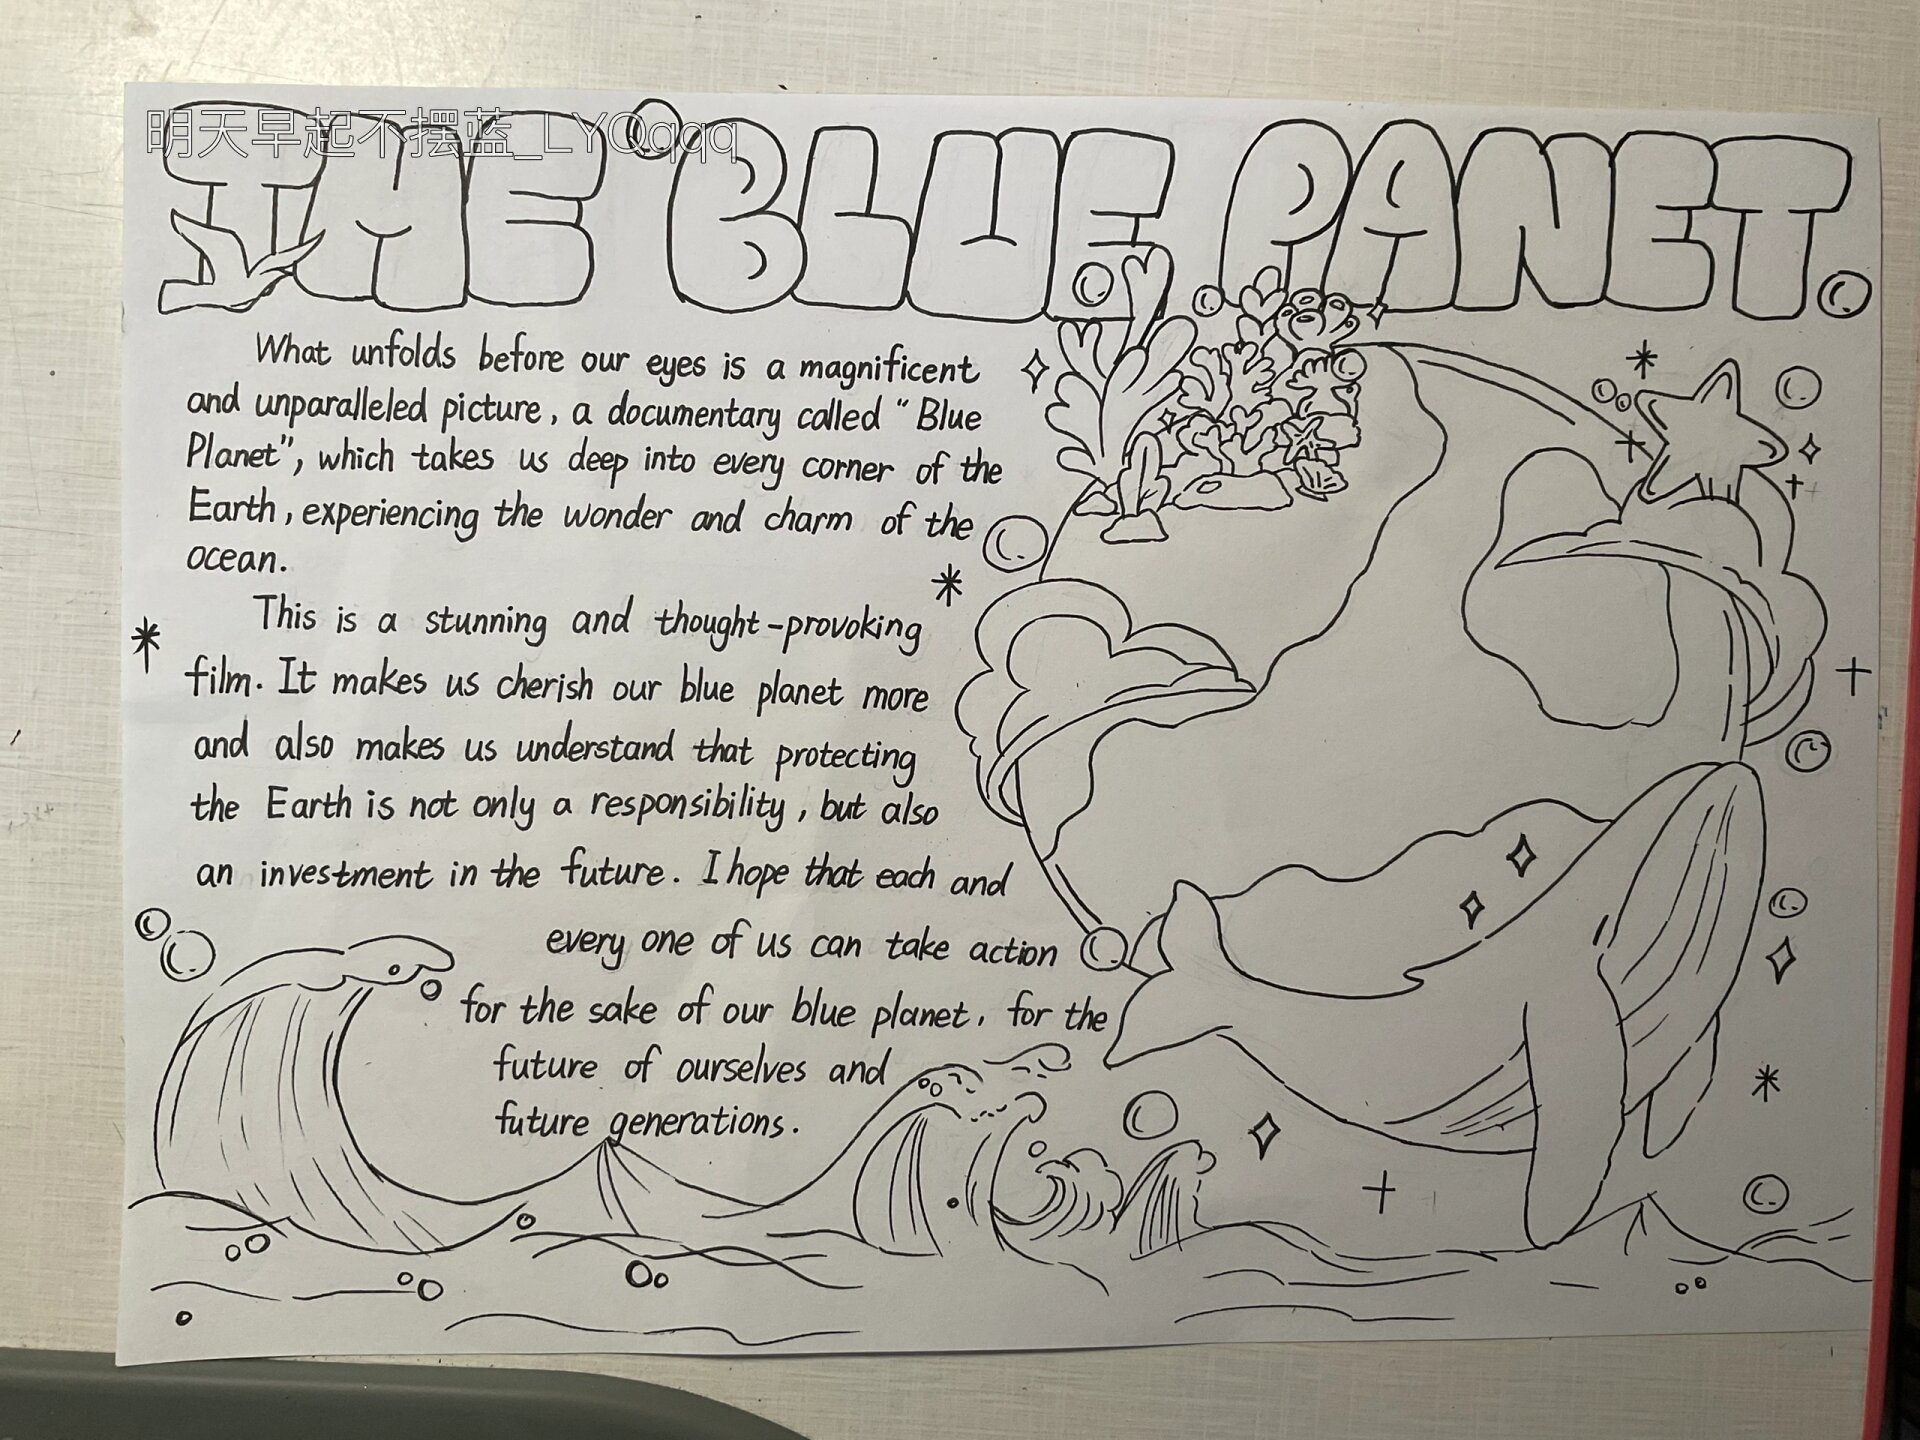 明天早起不摆蓝_LYQqqq
THE BLUE PANET.
What unfolds before our eyes is a magnificent
and unparalleled picture, a documentary called "Blue
Planet", which takes us deep into every corner of the
Earth, experiencing the wonder and charm of the
ocean.
This is a stunning and thought-provoking
film. It makes us cherish our blue planet more
and also makes us understand that protecting
the Earth is not only a responsibility, but also
an investment in the future. I hope that each and
every one of us can take action
for the sake of our blue planet, for the
future of ourselves and
future generations.